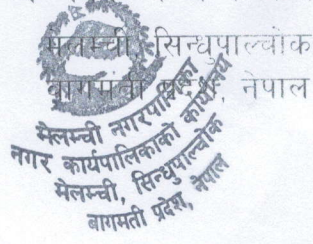 मेलम्ची, सिन्धुपाल्चोक
बागमती प्रदेश, नेपाल
मेलम्ची नगरपालिका
नगर कार्यपालिकाको कार्यालय
मेलम्ची, सिन्धुपाल्चोक
बागमती प्रदेश, नेपाल